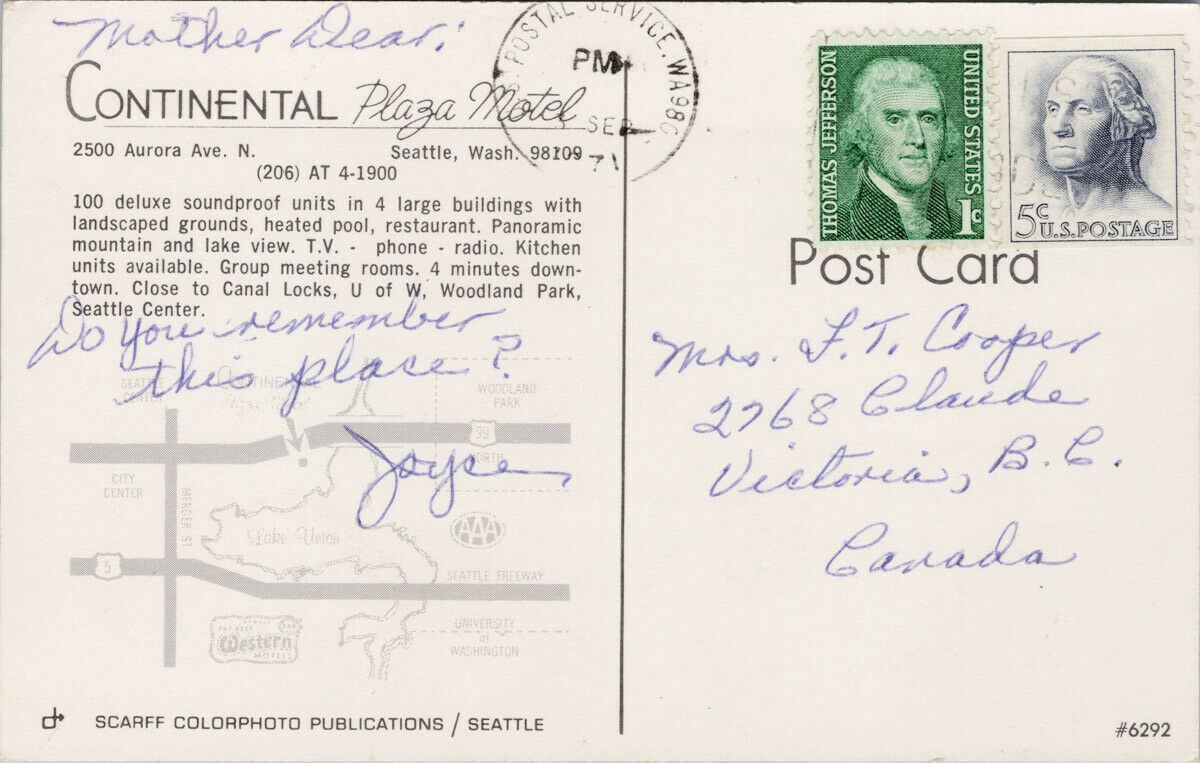 Mother Dear:
CONTINENTAL Plaza Motel
2500 Aurora Ave. N. Seattle, Wash. 98109
(206) AT 4-1900
100 deluxe soundproof units in 4 large buildings with
landscaped grounds, heated pool, restaurant. Panoramic
mountain and lake view. T.V. - phone - radio. Kitchen
units available. Group meeting rooms. 4 minutes down-
town. Close to Canal Locks, U of W, Woodland Park,
Seattle Center.
Do you remember
this place?
Joyce
SEATTLE
CENTER
CONTINENTAL
Plaza Motel
WOODLAND
PARK
99
NORTH
CITY
CENTER
MERCER ST
Lake Union
5
SEATTLE FREEWAY
Western
MOTELS
UNIVERSITY
of
WASHINGTON
SCARFF COLORPHOTO PUBLICATIONS / SEATTLE
POSTAL SERVICE, WA 980
PM
SEP
71
THOMAS JEFFERSON
UNITED STATES
1c
5c
U.S. POSTAGE
Post Card
Mrs. F.T. Cooper
2768 Claude
Victoria, B.C.
Canada
#6292